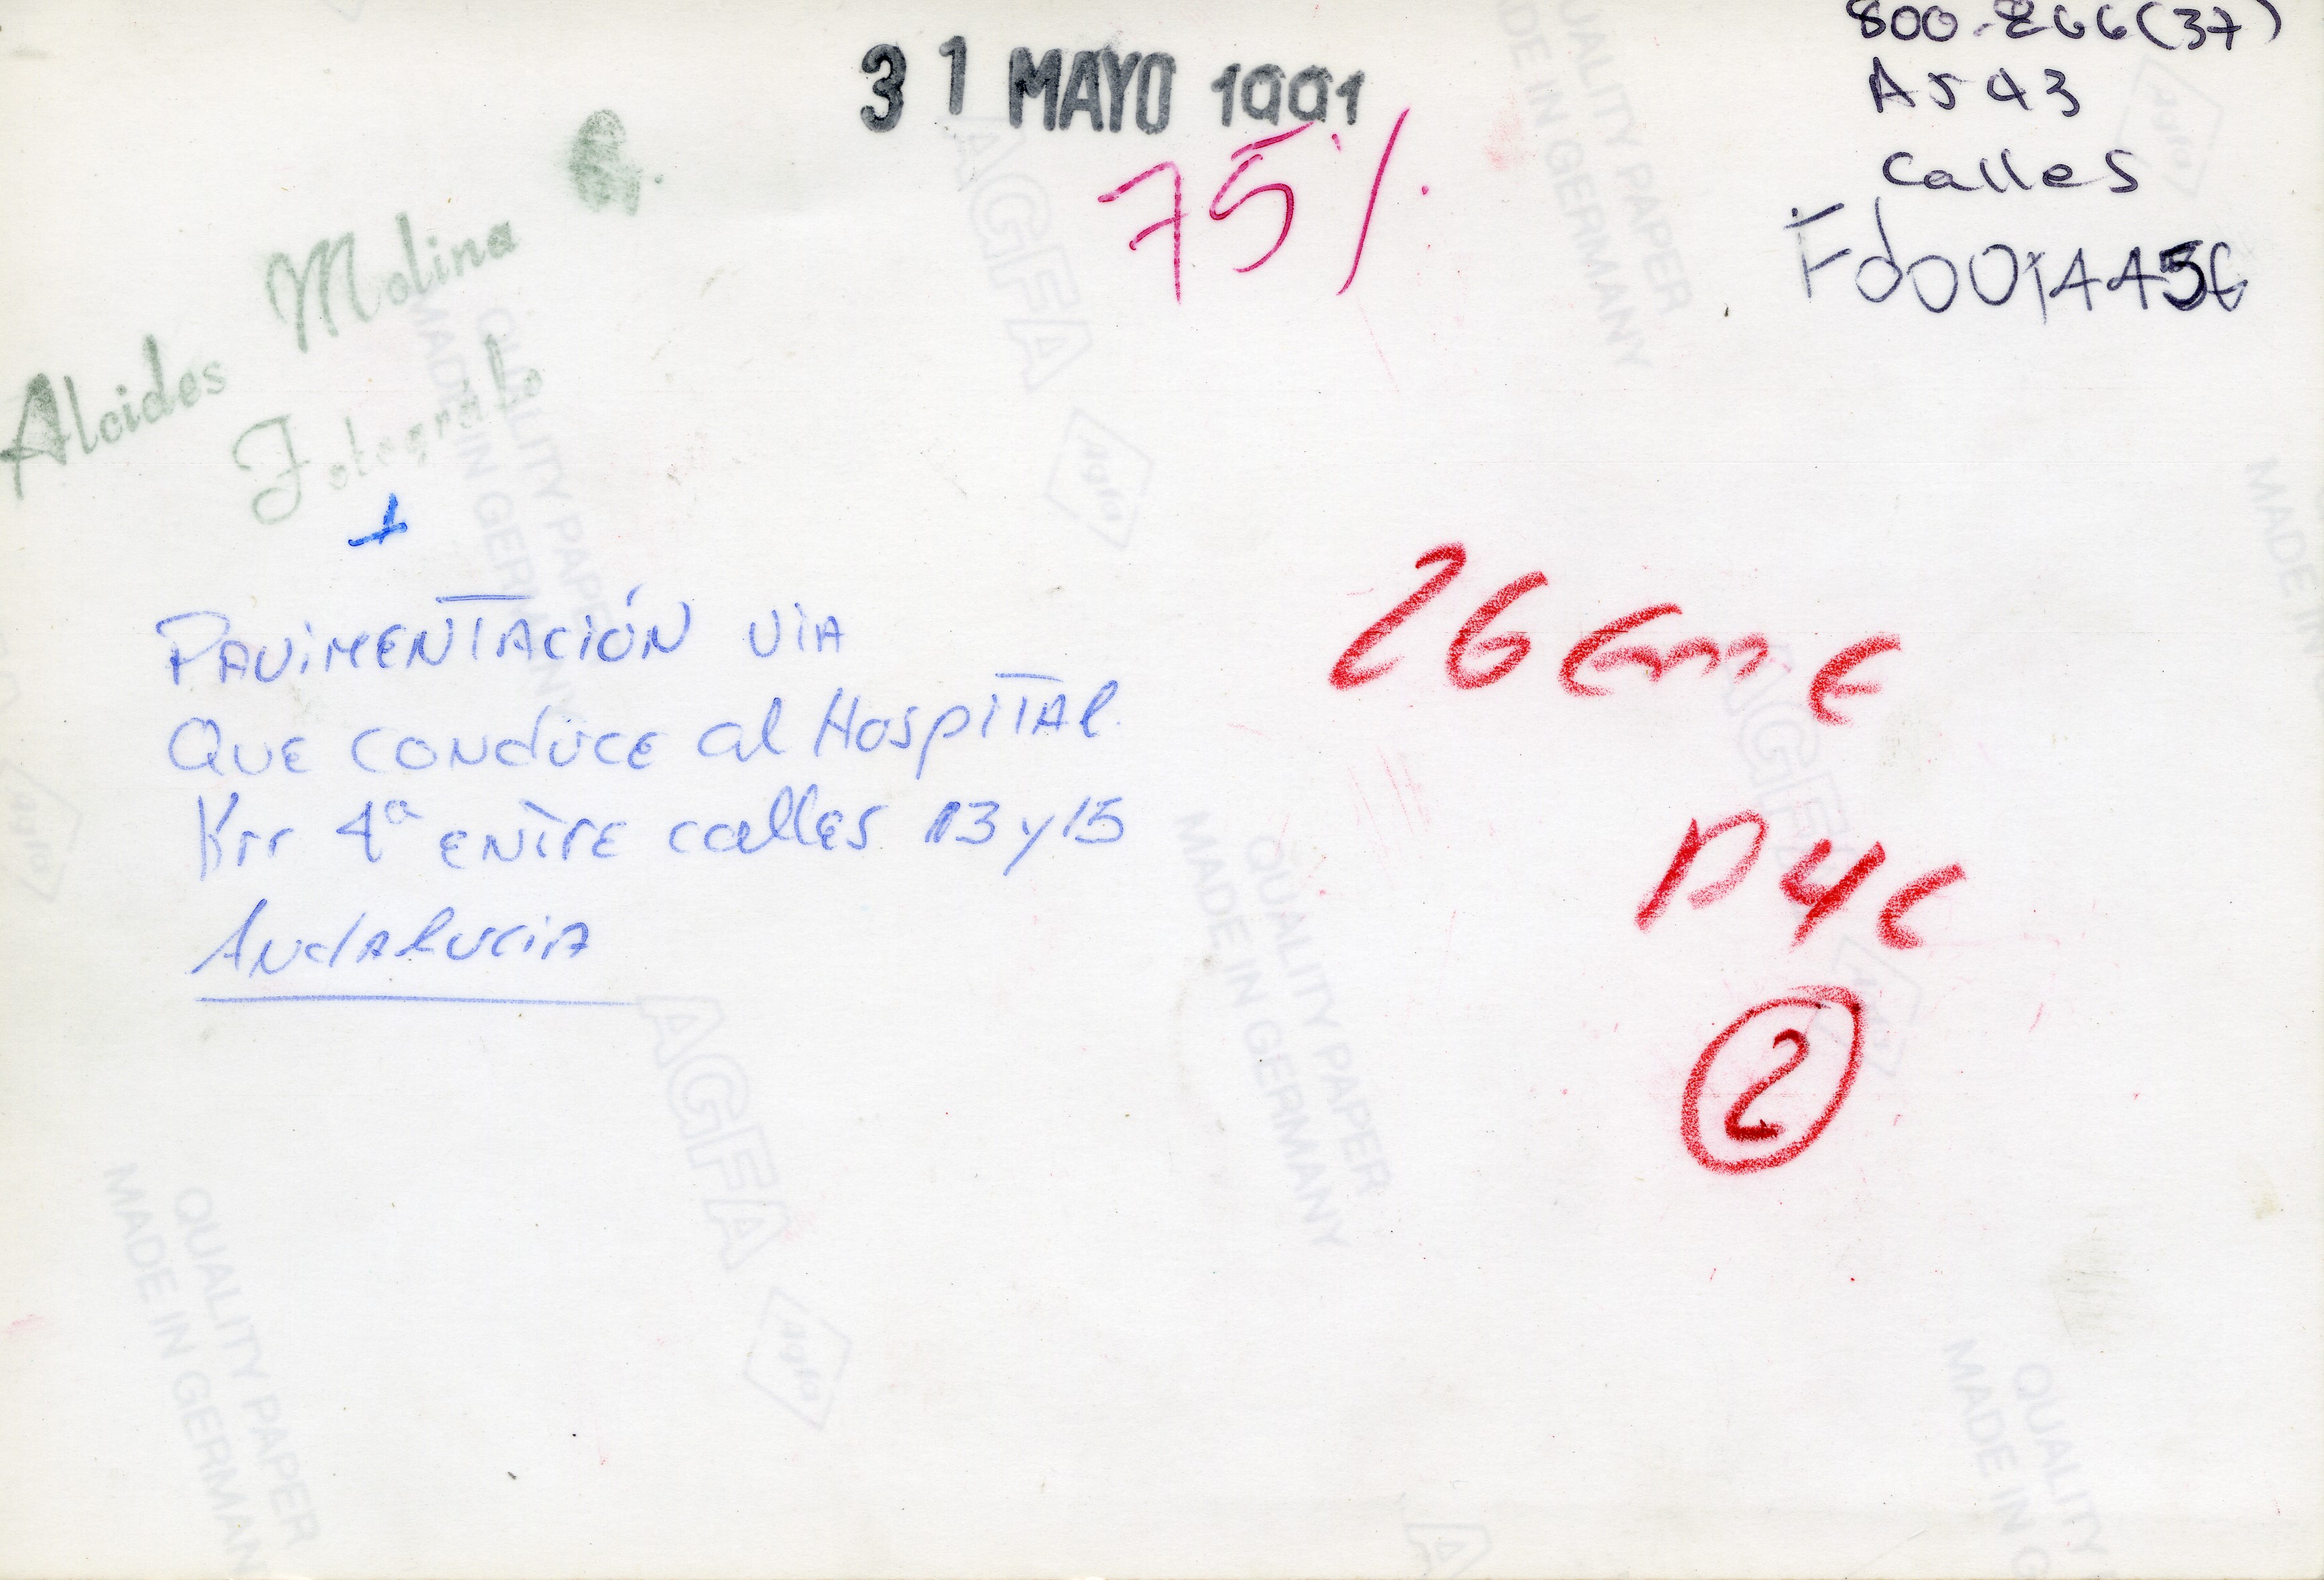 800-266(37)
A543
Calles
Fd0014456
31 MAYO 1991
75%
Alcides Molina G.
Fotografo
1
PAVIMENTACIÓN VIA
QUE CONDUCE al HospiTAl
Krr 4ª ENTRE calles 13 y 15
ANdAlUciA
26 Ene
P4C
2
AGFA
Agfa
QUALITY PAPER
MADE IN GERMANY